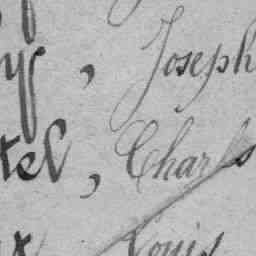 , Joseph
tel, Charles
x Louis